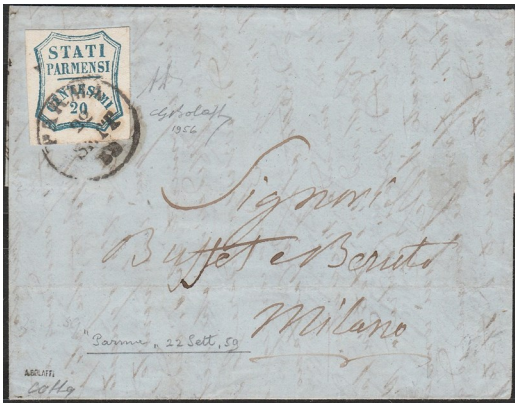 STATI
PARMENSI
CENTESIMI
20
PARMA
SETT
59
1956
Signori
Buffet e Beruto
Milano
"Parma" 22 Sett. 59
A.BOLAFFI